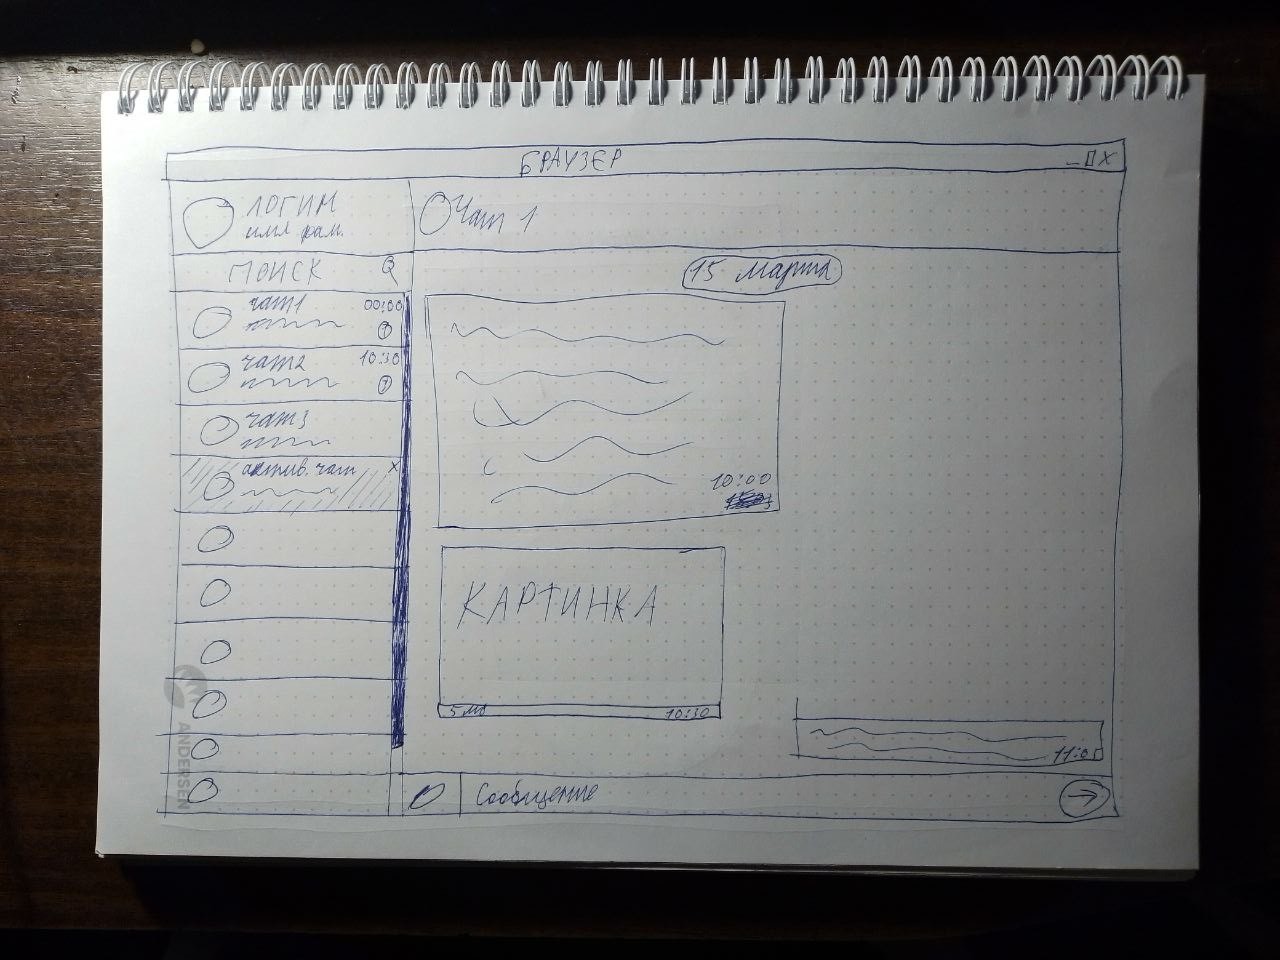 БРАУЗЕР
_ □ X
ЛОГИН
имя фам.
Чат 1
ПОИСК
15 марта
чат1 00:00
чат2 10:30
7
чат3
актив. чат x
10:00
КАРТИНКА
5 мб 10:30
11:05
Сообщение
ANDERSEN